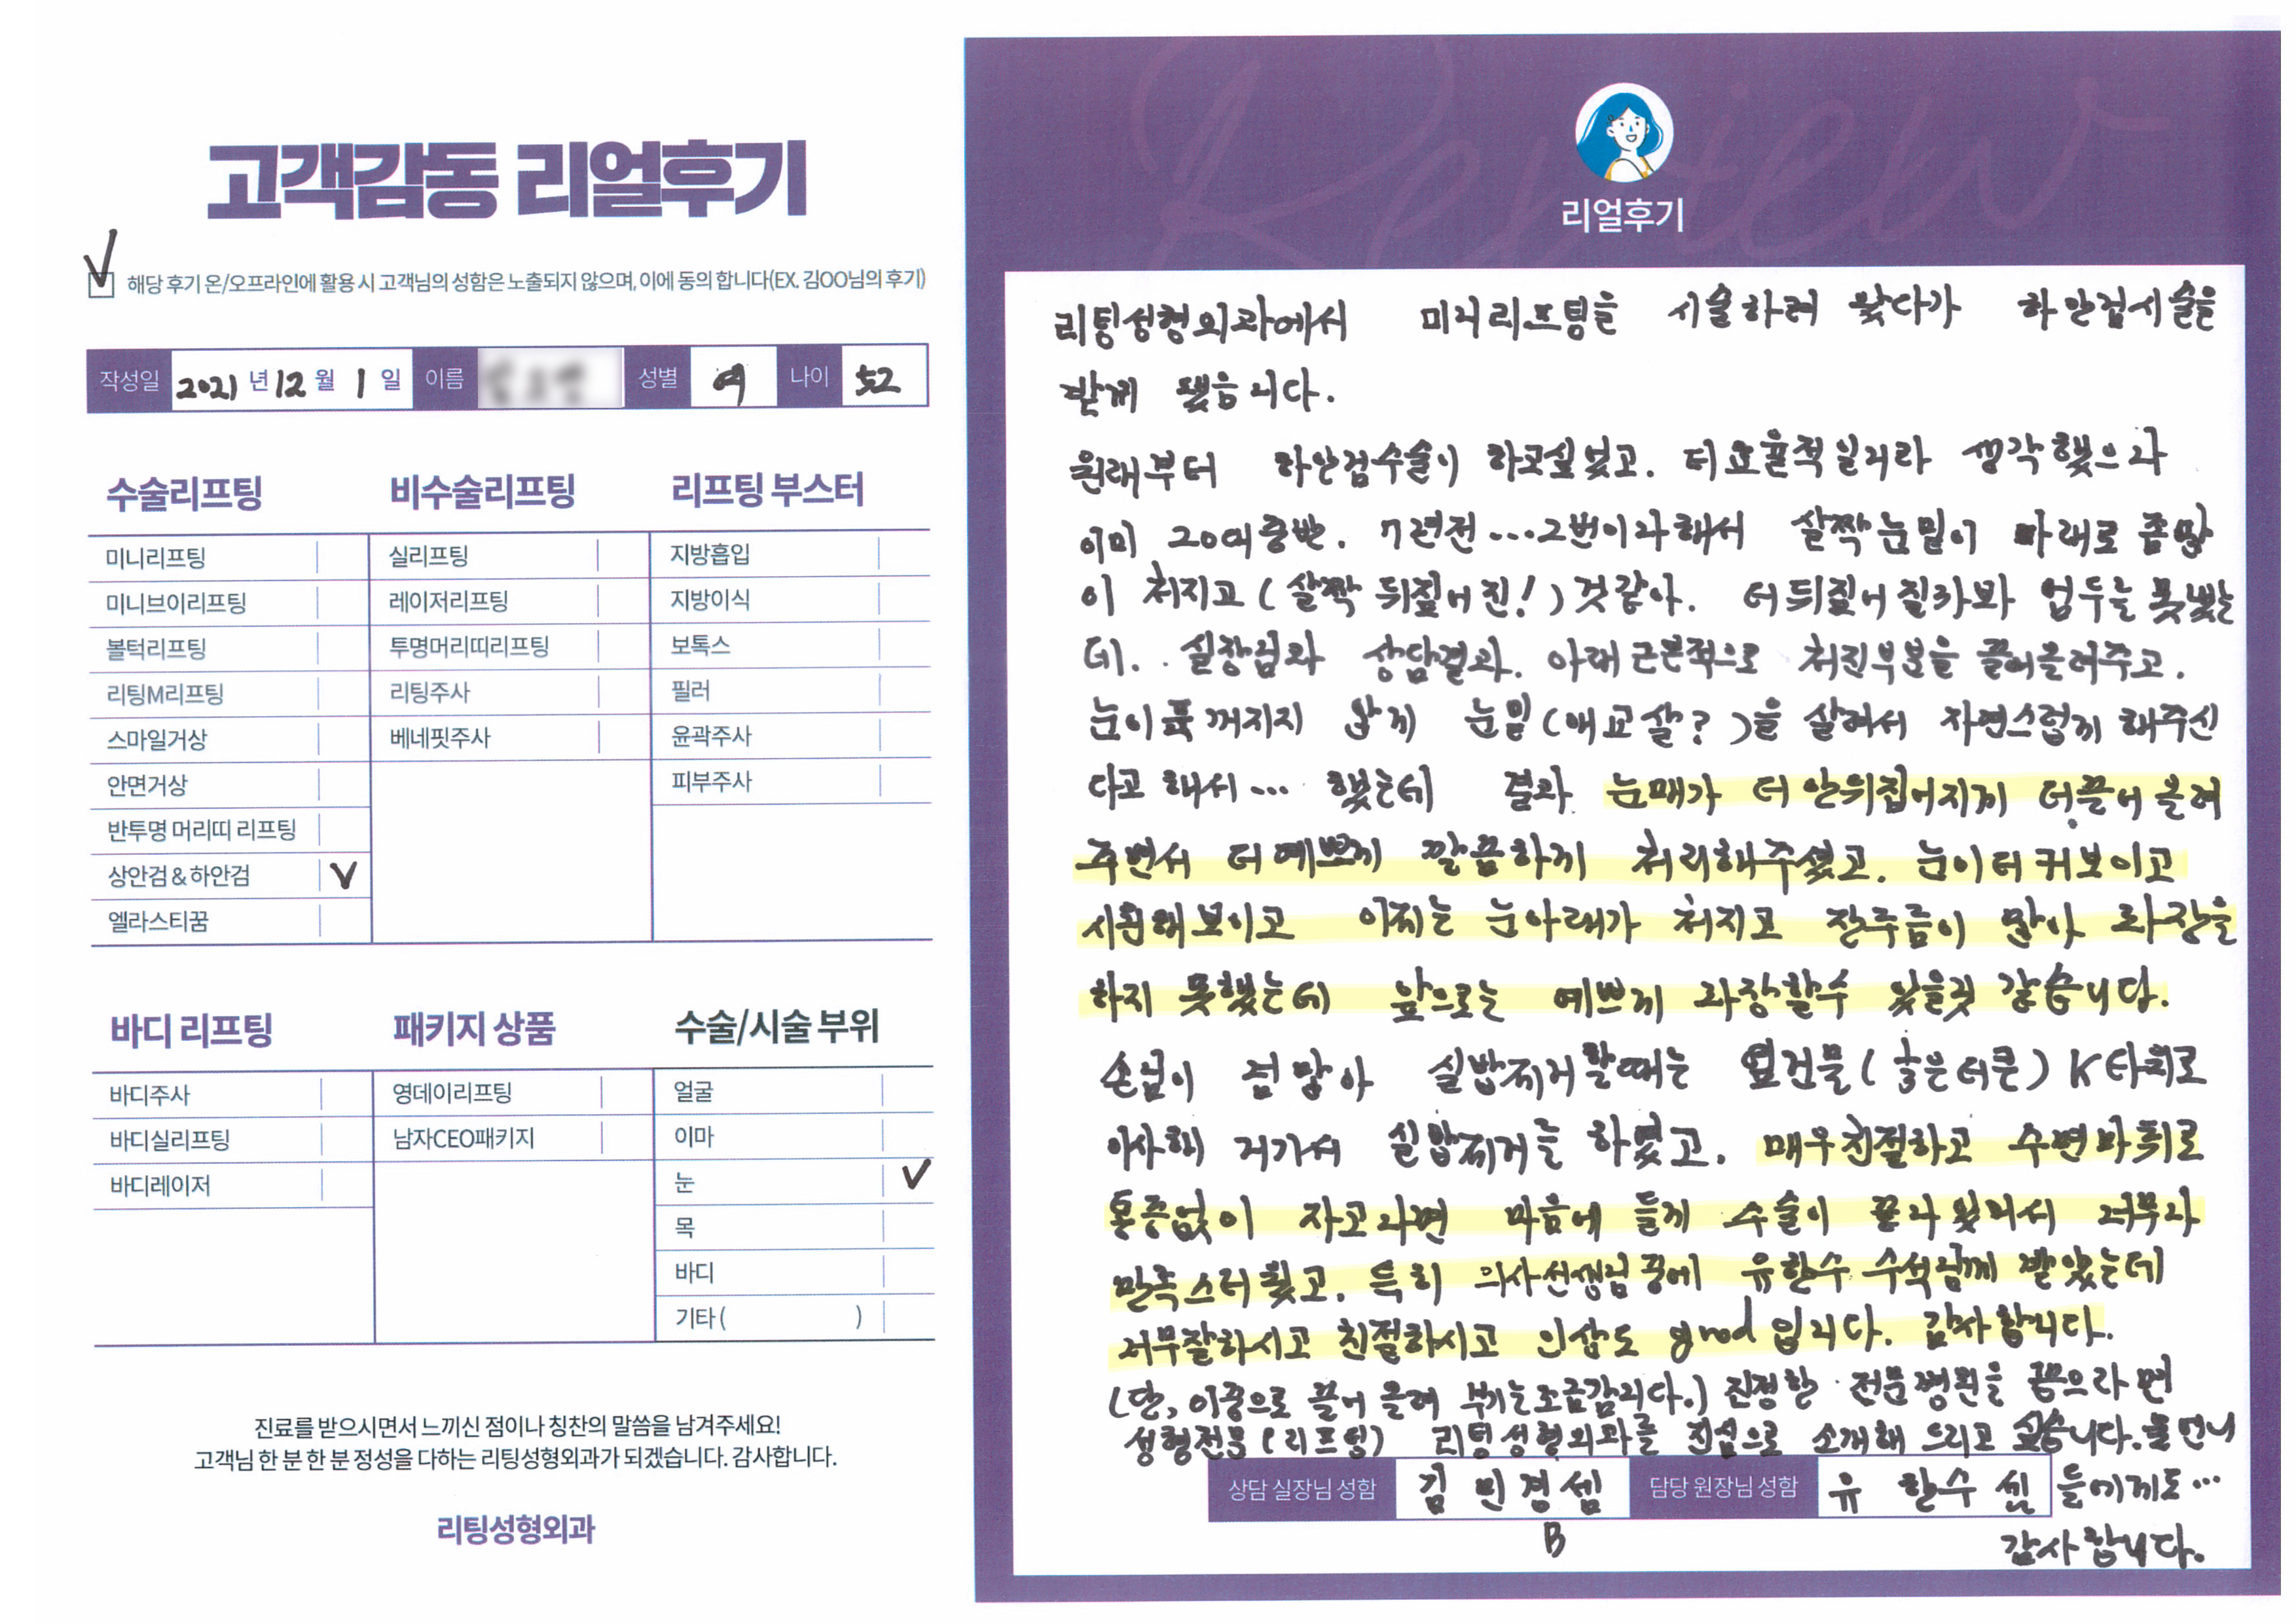 고객감동 리얼후기
해당 후기 온/오프라인에 활용 시 고객님의 성함은 노출되지 않으며, 이에 동의 합니다(EX. 김OO님의 후기)
작성일 2021 년 12 월 1 일 이름 성별 여 나이 52
수술리프팅 비수술리프팅 리프팅 부스터
미니리프팅 실리프팅 지방흡입
미니브이리프팅 레이저리프팅 지방이식
볼턱리프팅 투명머리띠리프팅 보톡스
리팅M리프팅 리팅주사 필러
스마일거상 베네핏주사 윤곽주사
안면거상 피부주사
반투명 머리띠 리프팅
상안검 & 하안검 V
엘라스티꿈
바디 리프팅 패키지 상품 수술/시술 부위
바디주사 영데이리프팅 얼굴
바디실리프팅 남자CEO패키지 이마
바디레이저 눈 V
목
바디
기타 ( )
진료를 받으시면서 느끼신 점이나 칭찬의 말씀을 남겨주세요!
고객님 한 분 한 분 정성을 다하는 리팅성형외과가 되겠습니다. 감사합니다.
리팅성형외과
Review
리얼후기
리팅성형외과에서 미니리프팅을 시술하러 왔다가 하안검시술을
받게 됐습니다.
원래부터 하안검수술이 하고싶었고. 더효율적일거라 생각했으나
이미 20대중반. 7년전...2번이나해서 살짝눈밑이 아래로 좀많
이 처지고 (살짝 뒤짚어진!) 것같아. 더뒤짚어질까봐 엄두를 못냈는
데.. 실장님과 상담결과. 아래근본적으로 처진부분을 끌어올려주고.
눈이푹꺼지지 않게 눈밑(애교살?)을 살려서 자연스럽게 해주신
다고 해서... 했는데 결과 눈매가 더 안뒤집어지게 더끌어 올려
주면서 더예쁘게 깔끔하게 처리해주셨고. 눈이더커보이고
시원해보이고 이제는 눈아래가 처지고 잔주름이 많아 화장을
하지 못했는데 앞으로는 예쁘게 화장할수 있을것 같습니다.
손님이 넘 많아 실밥제거할때는 옆건물(좋은더큰) K타워로
이사해 거기서 실밥제거를 하였고. 매우친절하고 수면마취로
통증없이 자고나면 마음에 들게 수술이 끝나 있어서 너무나
만족스러웠고. 특히 의사선생님중에 유한수 수석님께 받았는데
너무잘하시고 친절하시고 인상도 good 입니다. 감사합니다.
(단, 이중으로 끌어 올려 부기는조금갑니다.) 진정한 전문병원을 꼽으라 면
성형전문(리프팅) 리팅성형외과를 진심으로 소개해 드리고 싶습니다. 울언니
상담 실장님 성함 김 민경 쌤 담당 원장님 성함 유 한수 쌤 들에게도...
B 감사합니다.